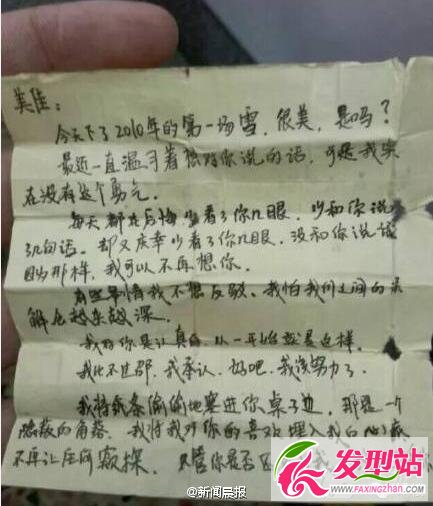 美佳：
今天下了2010年的第一场雪，很美，是吗？
最近一直温习着想对你说的话，可是我实
在没有这个勇气。
每天都在后悔少看了你几眼，少和你说
了几句话。却又庆幸少看了你几眼，没和你说话
因为那样，我可以不再想你。
有些事情我不想反驳。我怕我们之间的误
解会越来越深。
我对你是认真的，从一开始就是这样。
我比不过那，我承认，好吧，我该努力了。
我将纸条偷偷地塞进你桌子边，那是一个
隐蔽的角落。我将我对你的喜欢埋入我的
不再让任何窥探。只管你是否
@新闻晨报
发型站
www.faxingzhan.com